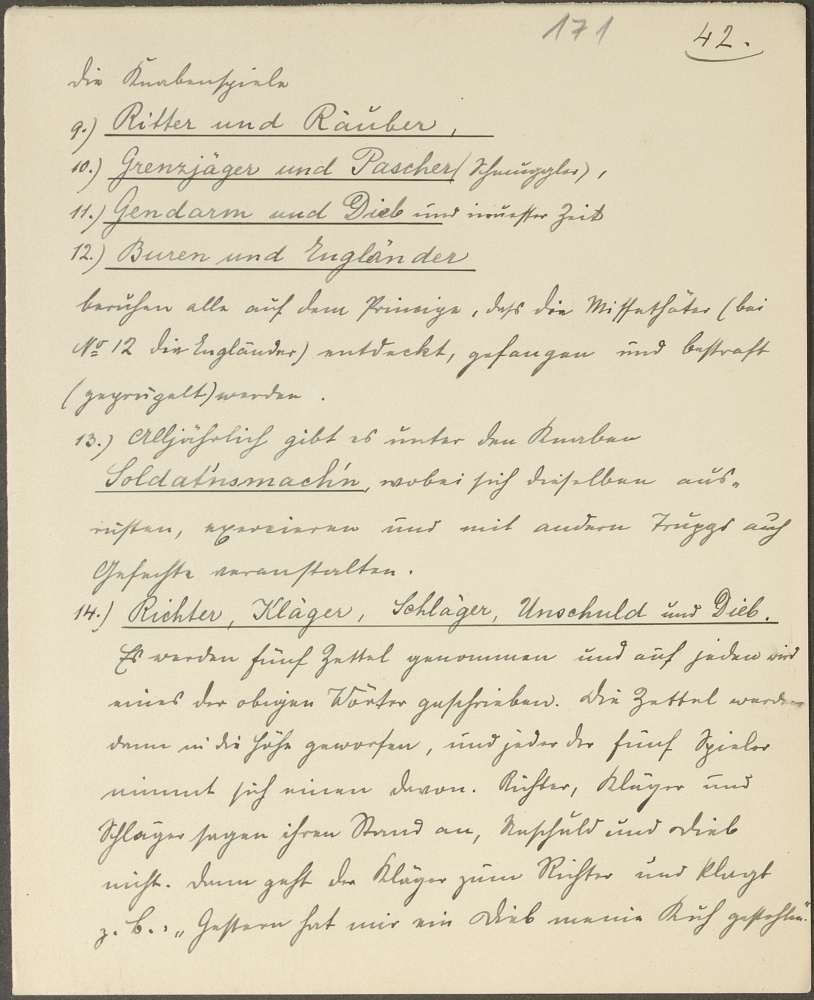 171
42.
Die Knabenspiele
9.) Ritter und Räuber,
10.) Grenzjäger und Pascher (Schmuggler),
11.) Gendarm und Dieb und in neuester Zeit
12.) Buren und Engländer
beruhen alle auf dem Prinzipe, daß die Missethäter (bei
No 12 die Engländer) entdeckt, gefangen und bestraft
(geprügelt) werden.
13.) Alljährlich gibt es unter den Knaben
Soldat'nsmach'n, wobei sich dieselben aus-
rüsten, exercieren und mit andern Trupps auch
Gefechte veranstalten.
14.) Richter, Kläger, Schläger, Unschuld und Dieb.
Es werden fünf Zettel genommen und auf jeden wird
eines der obigen Wörter geschrieben. Die Zettel werden
dann in die Höhe geworfen, und jeder der fünf Spieler
nimmt sich einen davon. Richter, Kläger und
Schläger sagen ihren Stand an, Unschuld und Dieb
nicht. Dann geht der Kläger zum Richter und klagt
z. B.: „Gestern hat mir ein Dieb meine Kuh gestohlen.